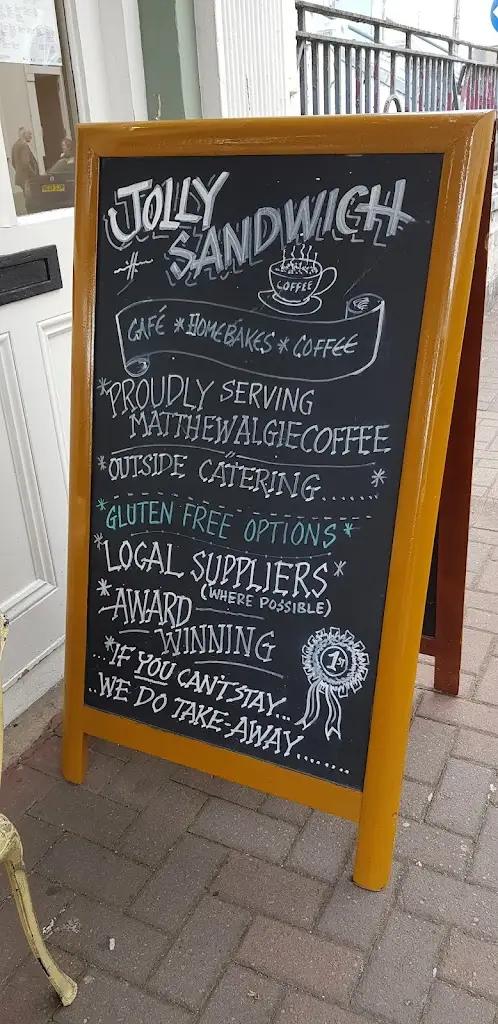 JOLLY
SANDWICH
COFFEE
CAFÉ * HOMEBAKES * COFFEE
*PROUDLY SERVING
MATTHEW ALGIE COFFEE
*OUTSIDE CATERING.......*
*GLUTEN FREE OPTIONS*
*LOCAL SUPPLIERS*
(WHERE POSSIBLE)
*AWARD
WINNING
1ST
...IF YOU CAN'T STAY...
..WE DO TAKE-AWAY........